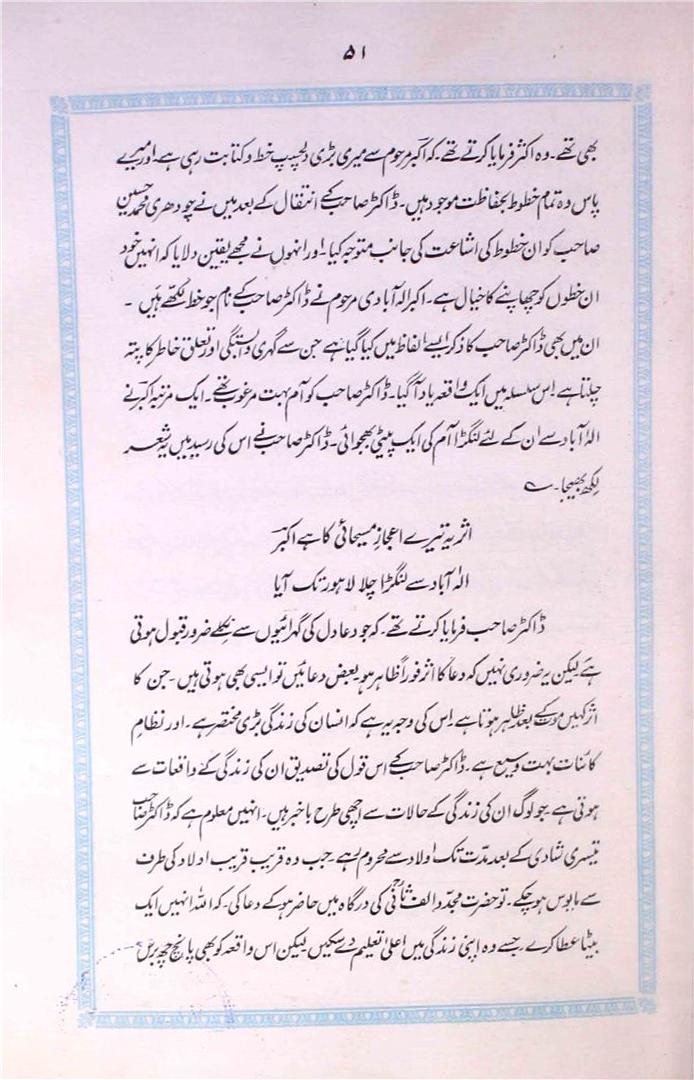 ۵۱
بھی تھے۔ وہ اکثر فرمایا کرتے تھے۔ کہ اکبر مرحوم سے میری بڑی دلچسپ خط و کتابت رہی ہے۔ اور میرے
پاس وہ تمام خطوط بحفاظت موجود ہیں۔ ڈاکٹر صاحب کے انتقال کے بعد میں نے چودھری محمد حسین
صاحب کو ان خطوط کی اشاعت کی جانب متوجہ کیا۔ اور انہوں نے مجھے یقین دلایا کہ انہیں خود
ان خطوں کو چھاپنے کا خیال ہے۔ اکبر الہ آبادی مرحوم نے ڈاکٹر صاحب کے نام جو خط لکھے ہیں۔
ان میں بھی ڈاکٹر صاحب کا ذکر ایسے الفاظ میں کیا گیا ہے جن سے گہری وابستگی اور تعلق خاطر کا پتہ
چلتا ہے۔ اس سلسلہ میں ایک واقعہ یاد آگیا۔ ڈاکٹر صاحب کو آم بہت مرغوب تھے۔ ایک مرتبہ اکبر نے
الہ آباد سے ان کے لئے لنگڑا آم کی ایک پیٹی بھجوائی۔ ڈاکٹر صاحب نے اس کی رسید میں یہ شعر
لکھ بھیجا۔ ؎
اثر یہ تیرے اعجازِ مسیحائی کا ہے اکبر
الہ آباد سے لنگڑا چلا لاہور تک آیا
ڈاکٹر صاحب فرمایا کرتے تھے۔ کہ جو دعا دل کی گہرائیوں سے نکلے ضرور قبول ہوتی
ہے لیکن یہ ضروری نہیں کہ دعا کا اثر فوراً ظاہر ہو۔ بعض دعائیں تو ایسی بھی ہوتی ہیں۔ جن کا
اثر کہیں موت کے بعد ظاہر ہوتا ہے۔ اس کی وجہ یہ ہے کہ انسان کی زندگی بڑی مختصر ہے۔ اور نظامِ
کائنات بہت وسیع ہے۔ ڈاکٹر صاحب کے اس قول کی تصدیق ان کی زندگی کے واقعات سے
ہوتی ہے۔ جو لوگ ان کی زندگی کے حالات سے اچھی طرح باخبر ہیں۔ انہیں معلوم ہے کہ ڈاکٹر صاحب
تیسری شادی کے بعد مدت تک اولاد سے محروم رہے۔ جب وہ قریب قریب اولاد کی طرف
سے مایوس ہو چکے۔ تو حضرت مجدد الف ثانیؒ کی درگاہ میں حاضر ہو کے دعا کی۔ کہ اللہ انہیں ایک
بیٹا عطا کرے۔ جسے وہ اپنی زندگی میں اعلیٰ تعلیم دے سکیں۔ لیکن اس واقعہ کو بھی پانچ چھ برس